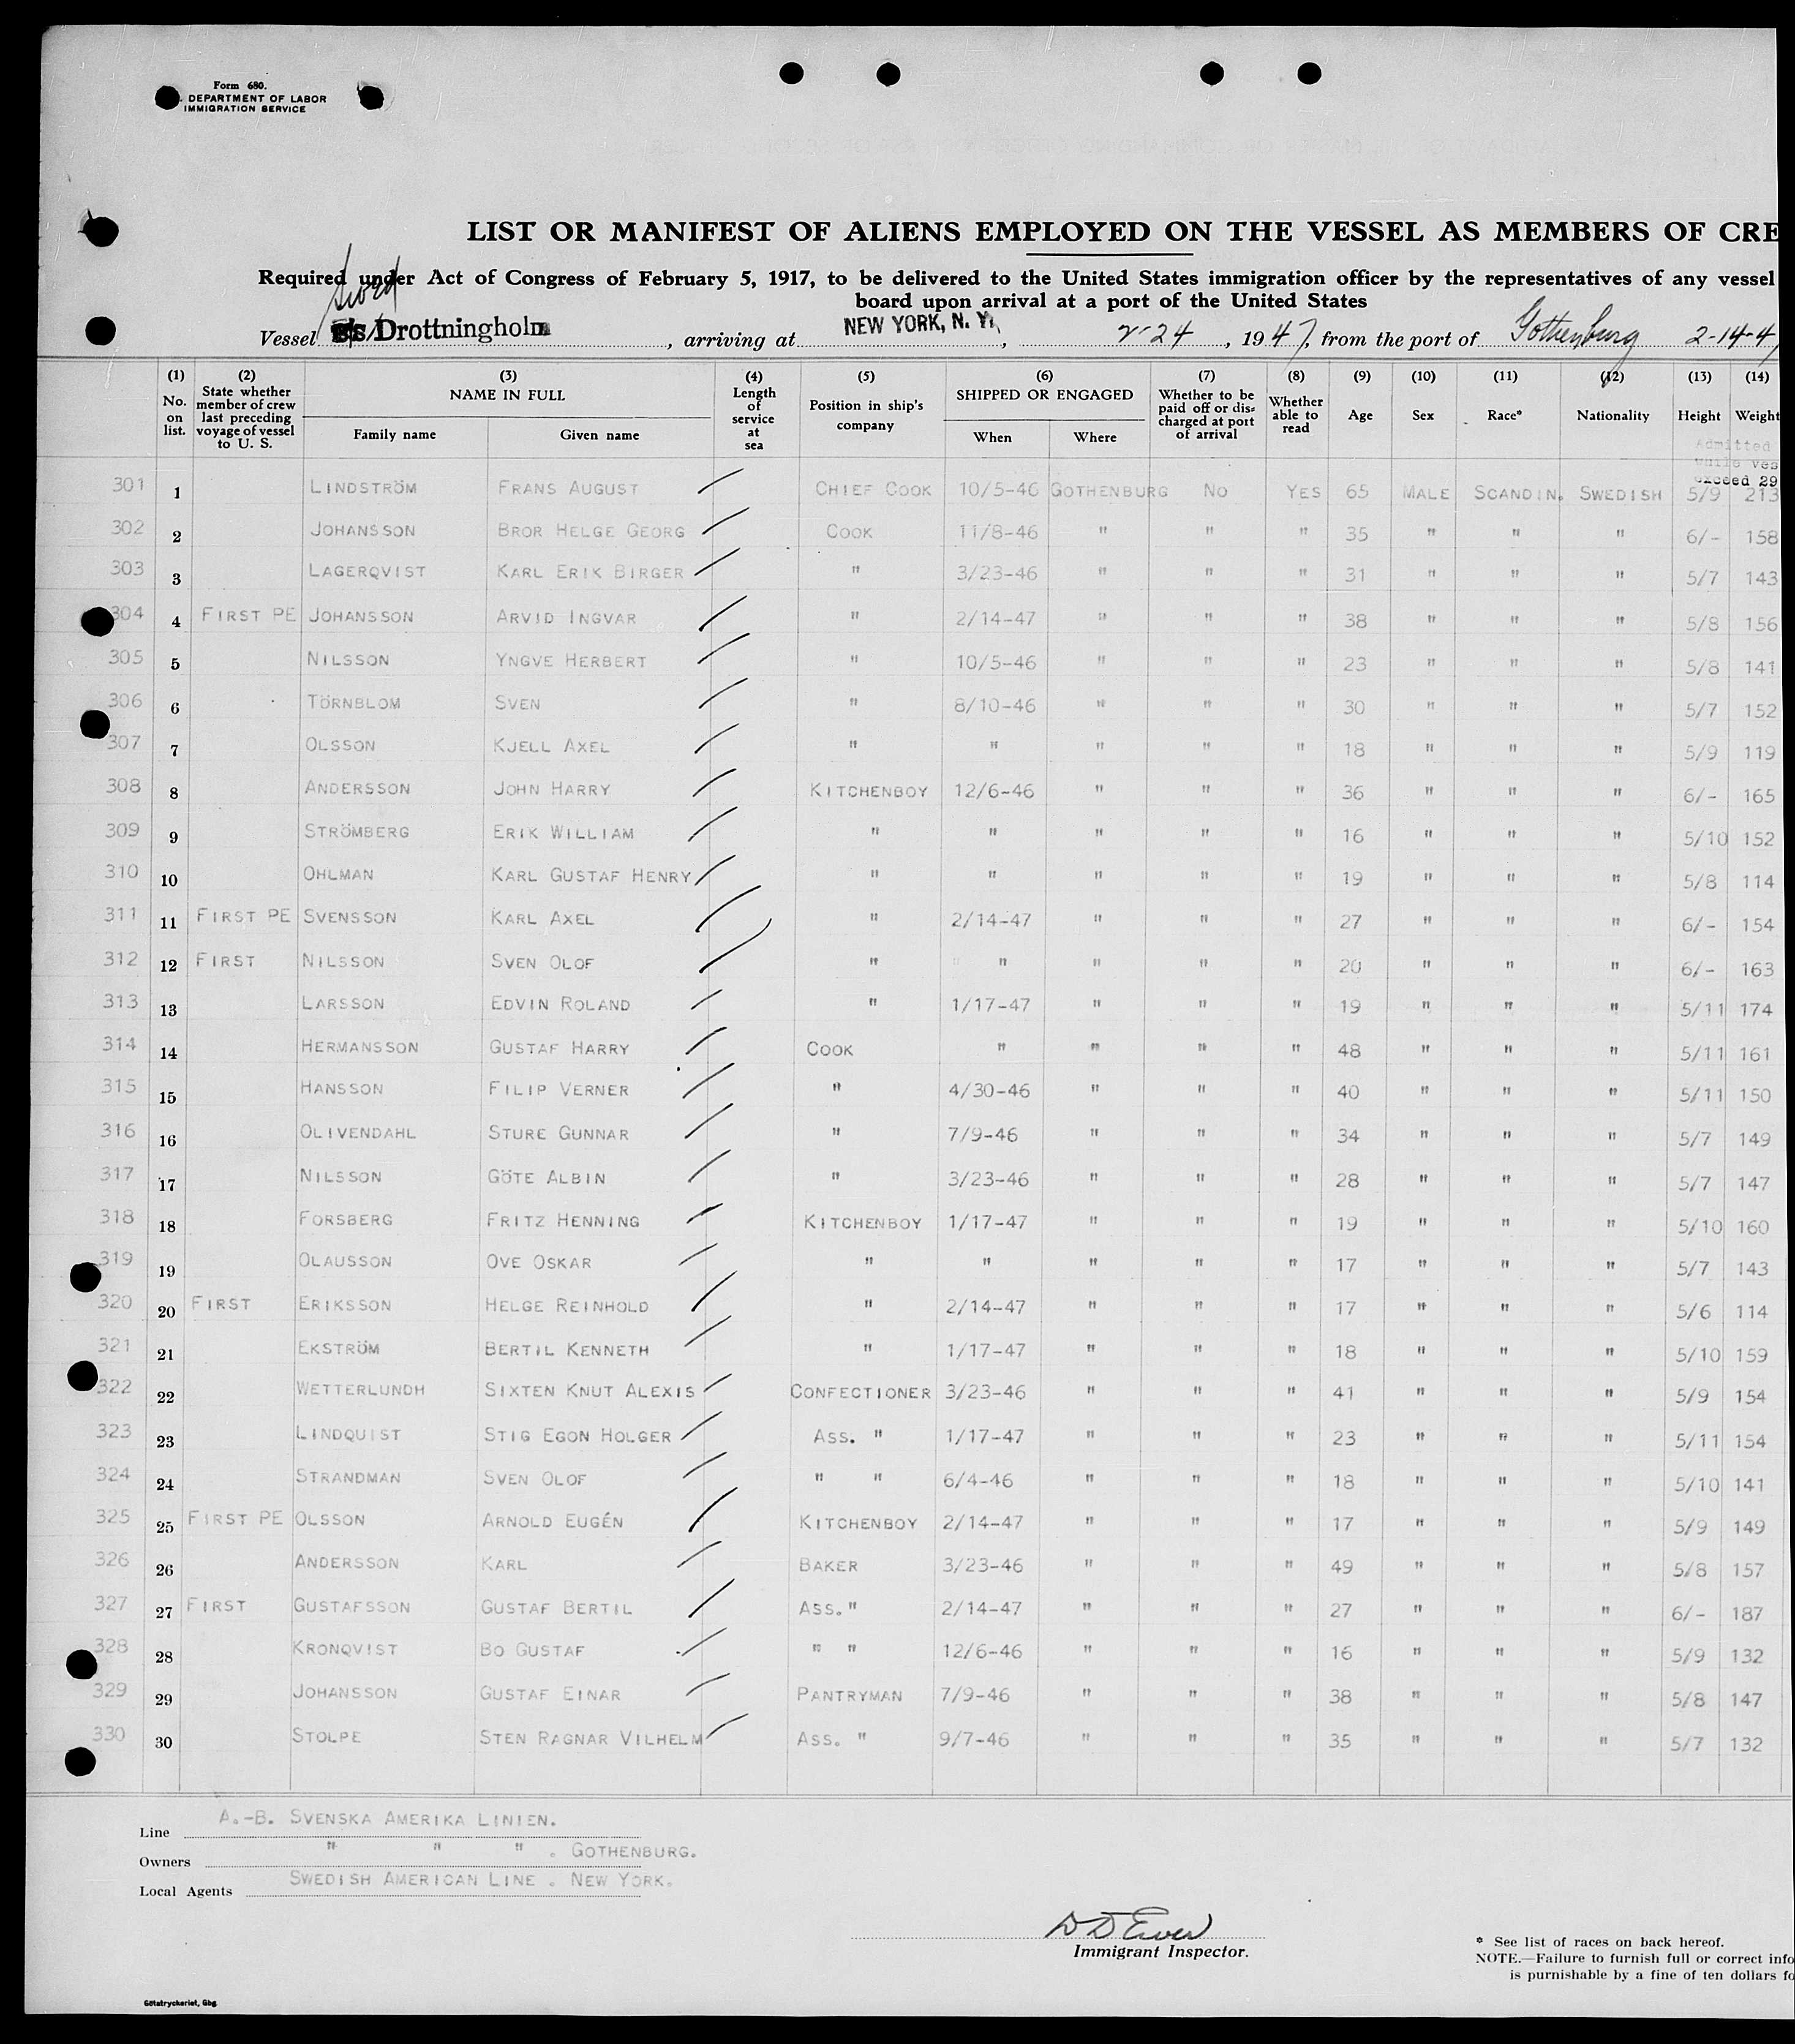 Form 680.
DEPARTMENT OF LABOR
IMMIGRATION SERVICE
LIST OR MANIFEST OF ALIENS EMPLOYED ON THE VESSEL AS MEMBERS OF CRE
Required under Act of Congress of February 5, 1917, to be delivered to the United States immigration officer by the representatives of any vessel
board upon arrival at a port of the United States
Swed
Vessel S/S Drottningholm, arriving at NEW YORK, N. Y., 2-24, 1947, from the port of Gothenburg 2-14-4
(1) No. on list. (2) State whether member of crew last preceding voyage of vessel to U. S. (3) NAME IN FULL Family name Given name (4) Length of service at sea (5) Position in ship's company (6) SHIPPED OR ENGAGED When Where (7) Whether to be paid off or discharged at port of arrival (8) Whether able to read (9) Age (10) Sex (11) Race* (12) Nationality (13) Height (14) Weight
Admitted
while ves
exceed 29
301 1 LINDSTRÖM FRANS AUGUST CHIEF COOK 10/5-46 GOTHENBURG NO YES 65 MALE SCANDIN. SWEDISH 5/9 213
302 2 JOHANSSON BROR HELGE GEORG COOK 11/8-46 " " " 35 " " " 6/- 158
303 3 LAGERQVIST KARL ERIK BIRGER " 3/23-46 " " " 31 " " " 5/7 143
304 4 FIRST PE JOHANSSON ARVID INGVAR " 2/14-47 " " " 38 " " " 5/8 156
305 5 NILSSON YNGVE HERBERT " 10/5-46 " " " 23 " " " 5/8 141
306 6 TÖRNBLOM SVEN " 8/10-46 " " " 30 " " " 5/7 152
307 7 OLSSON KJELL AXEL " " " " " 18 " " " 5/9 119
308 8 ANDERSSON JOHN HARRY KITCHENBOY 12/6-46 " " " 36 " " " 6/- 165
309 9 STRÖMBERG ERIK WILLIAM " " " " " 16 " " " 5/10 152
310 10 OHLMAN KARL GUSTAF HENRY " " " " " 19 " " " 5/8 114
311 11 FIRST PE SVENSSON KARL AXEL " 2/14-47 " " " 27 " " " 6/- 154
312 12 FIRST NILSSON SVEN OLOF " " " " " 20 " " " 6/- 163
313 13 LARSSON EDVIN ROLAND " 1/17-47 " " " 19 " " " 5/11 174
314 14 HERMANSSON GUSTAF HARRY COOK " " " " 48 " " " 5/11 161
315 15 HANSSON FILIP VERNER " 4/30-46 " " " 40 " " " 5/11 150
316 16 OLIVENDAHL STURE GUNNAR " 7/9-46 " " " 34 " " " 5/7 149
317 17 NILSSON GÖTE ALBIN " 3/23-46 " " " 28 " " " 5/7 147
318 18 FORSBERG FRITZ HENNING KITCHENBOY 1/17-47 " " " 19 " " " 5/10 160
319 19 OLAUSSON OVE OSKAR " " " " " 17 " " " 5/7 143
320 20 FIRST ERIKSSON HELGE REINHOLD " 2/14-47 " " " 17 " " " 5/6 114
321 21 EKSTRÖM BERTIL KENNETH " 1/17-47 " " " 18 " " " 5/10 159
322 22 WETTERLUNDH SIXTEN KNUT ALEXIS CONFECTIONER 3/23-46 " " " 41 " " " 5/9 154
323 23 LINDQUIST STIG EGON HOLGER ASS. " 1/17-47 " " " 23 " " " 5/11 154
324 24 STRANDMAN SVEN OLOF " " 6/4-46 " " " 18 " " " 5/10 141
325 25 FIRST PE OLSSON ARNOLD EUGÉN KITCHENBOY 2/14-47 " " " 17 " " " 5/9 149
326 26 ANDERSSON KARL BAKER 3/23-46 " " " 49 " " " 5/8 157
327 27 FIRST GUSTAFSSON GUSTAF BERTIL ASS. " 2/14-47 " " " 27 " " " 6/- 187
328 28 KRONQVIST BO GUSTAF " " 12/6-46 " " " 16 " " " 5/9 132
329 29 JOHANSSON GUSTAF EINAR PANTRYMAN 7/9-46 " " " 38 " " " 5/8 147
330 30 STOLPE STEN RAGNAR VILHELM ASS. " 9/7-46 " " " 35 " " " 5/7 132
Line A.-B. SVENSKA AMERIKA LINIEN.
Owners " " " . GOTHENBURG.
Local Agents SWEDISH AMERICAN LINE . NEW YORK.
D D Ewer
Immigrant Inspector.
* See list of races on back hereof.
NOTE.—Failure to furnish full or correct info
is purnishable by a fine of ten dollars fo
Götatryckeriet, Gbg